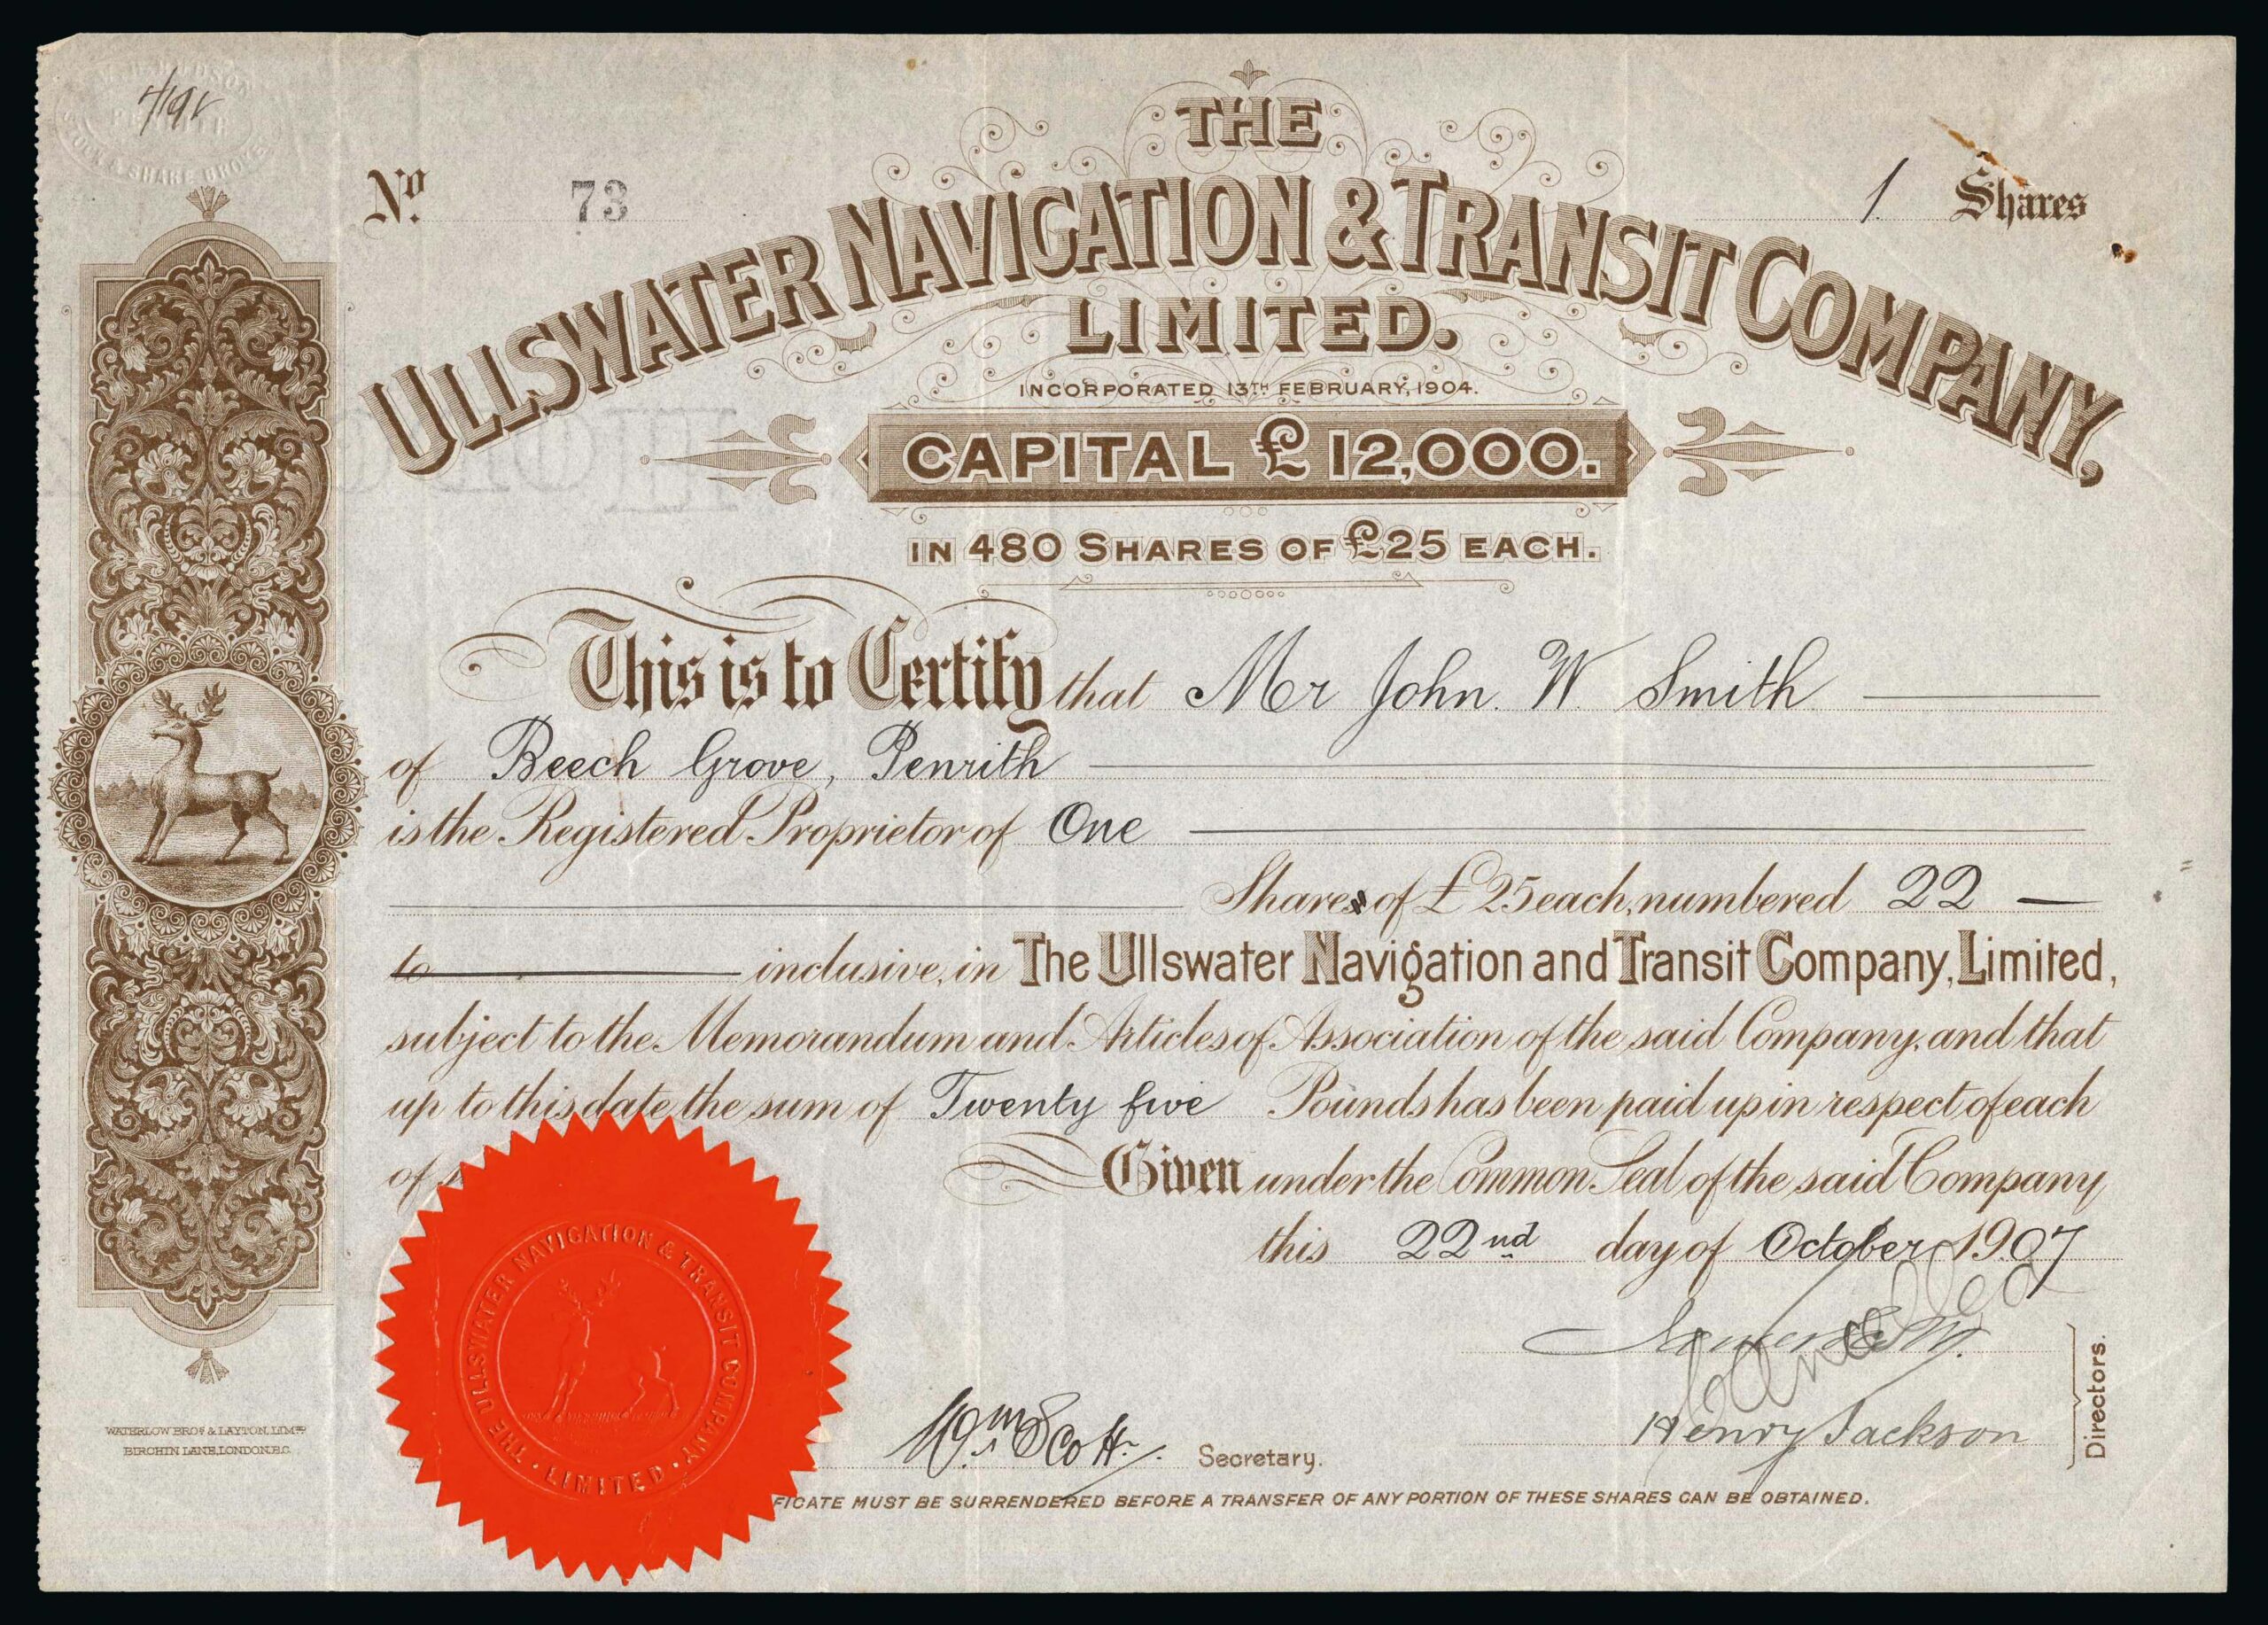 4/191
No. 73
1 Shares
THE
ULLSWATER NAVIGATION & TRANSIT COMPANY,
LIMITED.
INCORPORATED 13TH FEBRUARY, 1904.
CAPITAL £12,000.
IN 480 SHARES OF £25 EACH.
This is to Certify that Mr John. W. Smith
of Beech Grove, Penrith
is the Registered Proprietor of One
Shares of £25 each, numbered 22
to inclusive, in The Ullswater Navigation and Transit Company, Limited,
subject to the Memorandum and Articles of Association of the said Company, and that
up to this date the sum of Twenty five Pounds has been paid up in respect of each
of
Given under the Common Seal of the said Company
this 22nd day of October 1907
Cancelled
Henry Jackson
Directors.
Wm. Scott. Secretary.
FICATE MUST BE SURRENDERED BEFORE A TRANSFER OF ANY PORTION OF THESE SHARES CAN BE OBTAINED.
THE ULLSWATER NAVIGATION & TRANSIT COMPANY
· LIMITED ·
WATERLOW BROS & LAYTON, LIMTD
BIRCHIN LANE, LONDON, E.C.